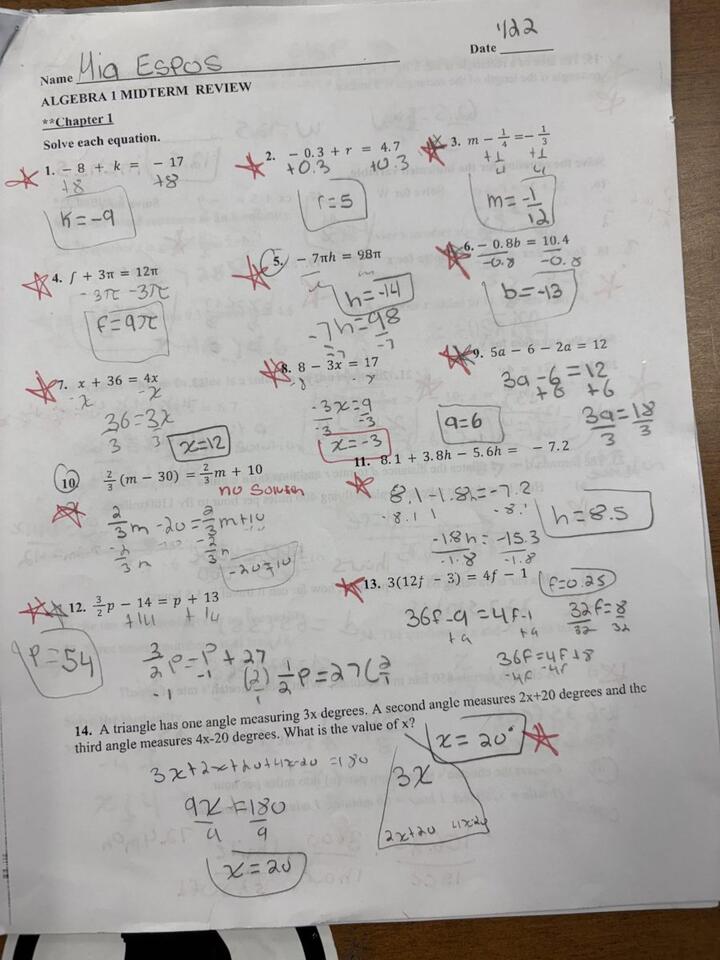 1/22
Name Mia Espos Date
ALGEBRA 1 MIDTERM REVIEW
**Chapter 1
Solve each equation.
1. − 8 + k = − 17
+8 +8
K = -9
2. − 0.3 + r = 4.7
+0.3 +0.3
r = 5
3. m − 1/4 = − 1/3
+1/4 +1/4
m = -1/12
4. f + 3π = 12π
- 3π - 3π
f = 9π
5. − 7πh = 98π
h = -14
-7h = 98
-7 -7
6. − 0.8b = 10.4
-0.8 -0.8
b = -13
7. x + 36 = 4x
-x -x
36 = 3x
3 3
x = 12
8. 8 − 3x = 17
-3x = 9
-3 -3
x = -3
9. 5a − 6 − 2a = 12
3a - 6 = 12
+6 +6
3a = 18
3 3
a = 6
10. 2/3 (m − 30) = 2/3 m + 10
no solution
2/3 m - 20 = 2/3 m + 10
-2/3 m -2/3 m
-20 ≠ 10
11. 8.1 + 3.8h − 5.6h = − 7.2
8.1 - 1.8h = -7.2
-8.1 -8.1
-1.8h = -15.3
-1.8 -1.8
h = 8.5
12. 3/2 p − 14 = p + 13
+14 +14
3/2 p = p + 27
-1 -1
(2/1) 1/2 p = 27 (2/1
P = 54
13. 3(12f − 3) = 4f − 1
f = 0.25
36f - 9 = 4f - 1
+9 +9
36f = 4f + 8
-4f -4f
32f = 8
32 32
14. A triangle has one angle measuring 3x degrees. A second angle measures 2x+20 degrees and the
third angle measures 4x-20 degrees. What is the value of x?
x = 20°
3x + 2x + 20 + 4x - 20 = 180
9x = 180
9 9
x = 20
3x
2x+20 4x-20